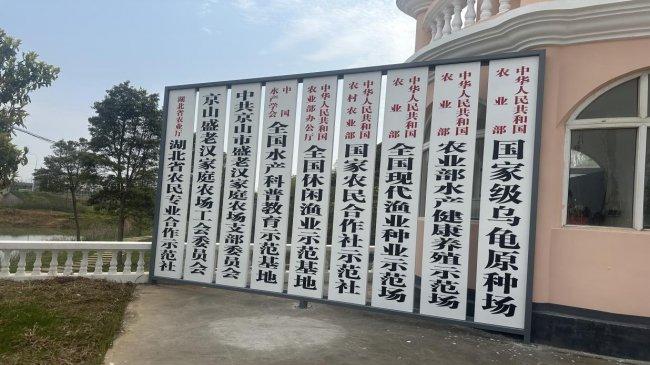 中华人民共和国
农业部
国家级乌龟原种场
中华人民共和国
农业部
农业部水产健康养殖示范场
中华人民共和国
农业部
全国现代渔业种业示范场
中华人民共和国
农村农业部
国家农民合作社示范社
中华人民共和国
农业部办公厅
全国休闲渔业示范基地
中国
水产学会
全国水产科普教育示范基地
中共京山市盛老汉家庭农场支部委员会
京山盛老汉家庭农场工会委员会
湖北省农业厅
湖北省农民专业合作示范社